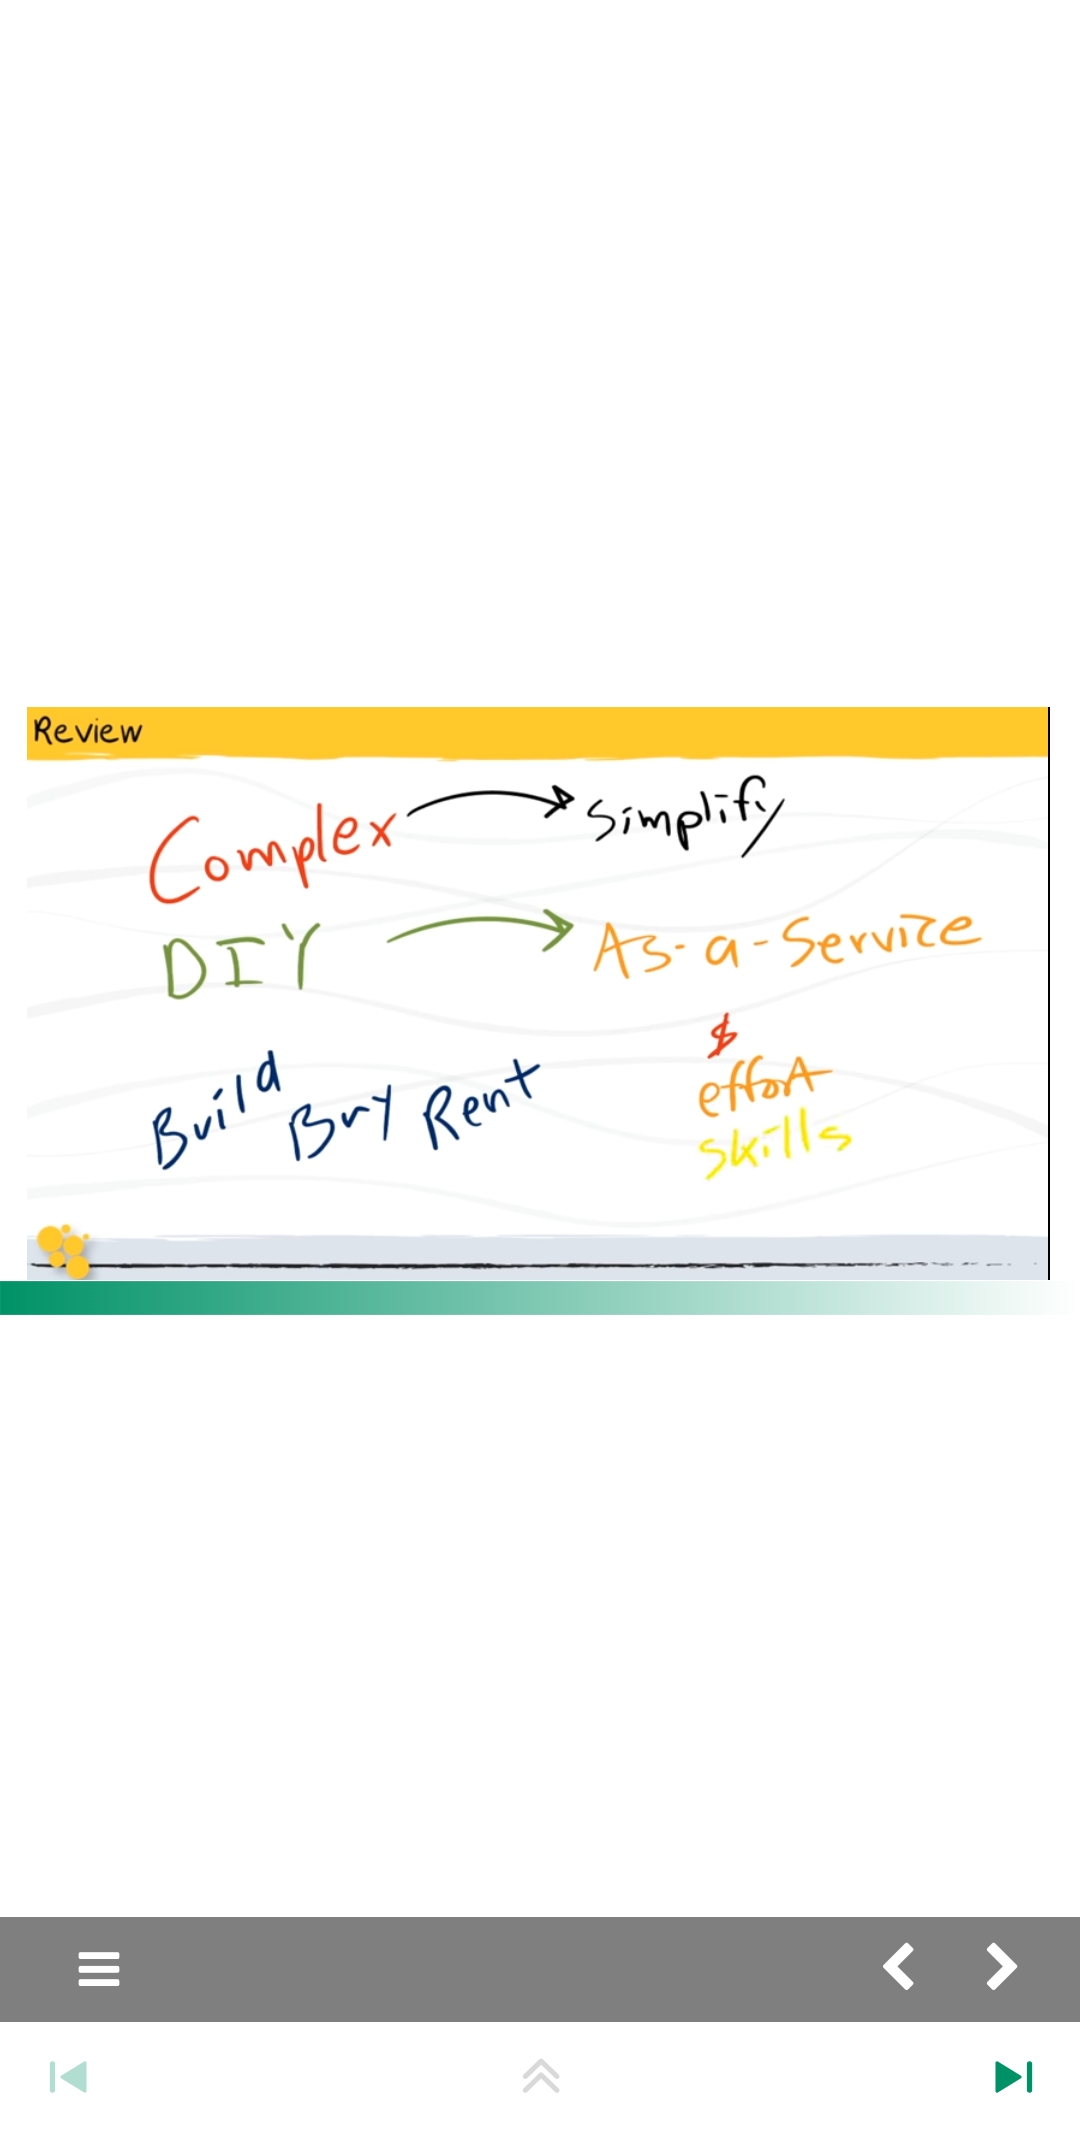 Review
Complex → Simplify
DIY → As-a-Service
Build Buy Rent
$
effort
skills